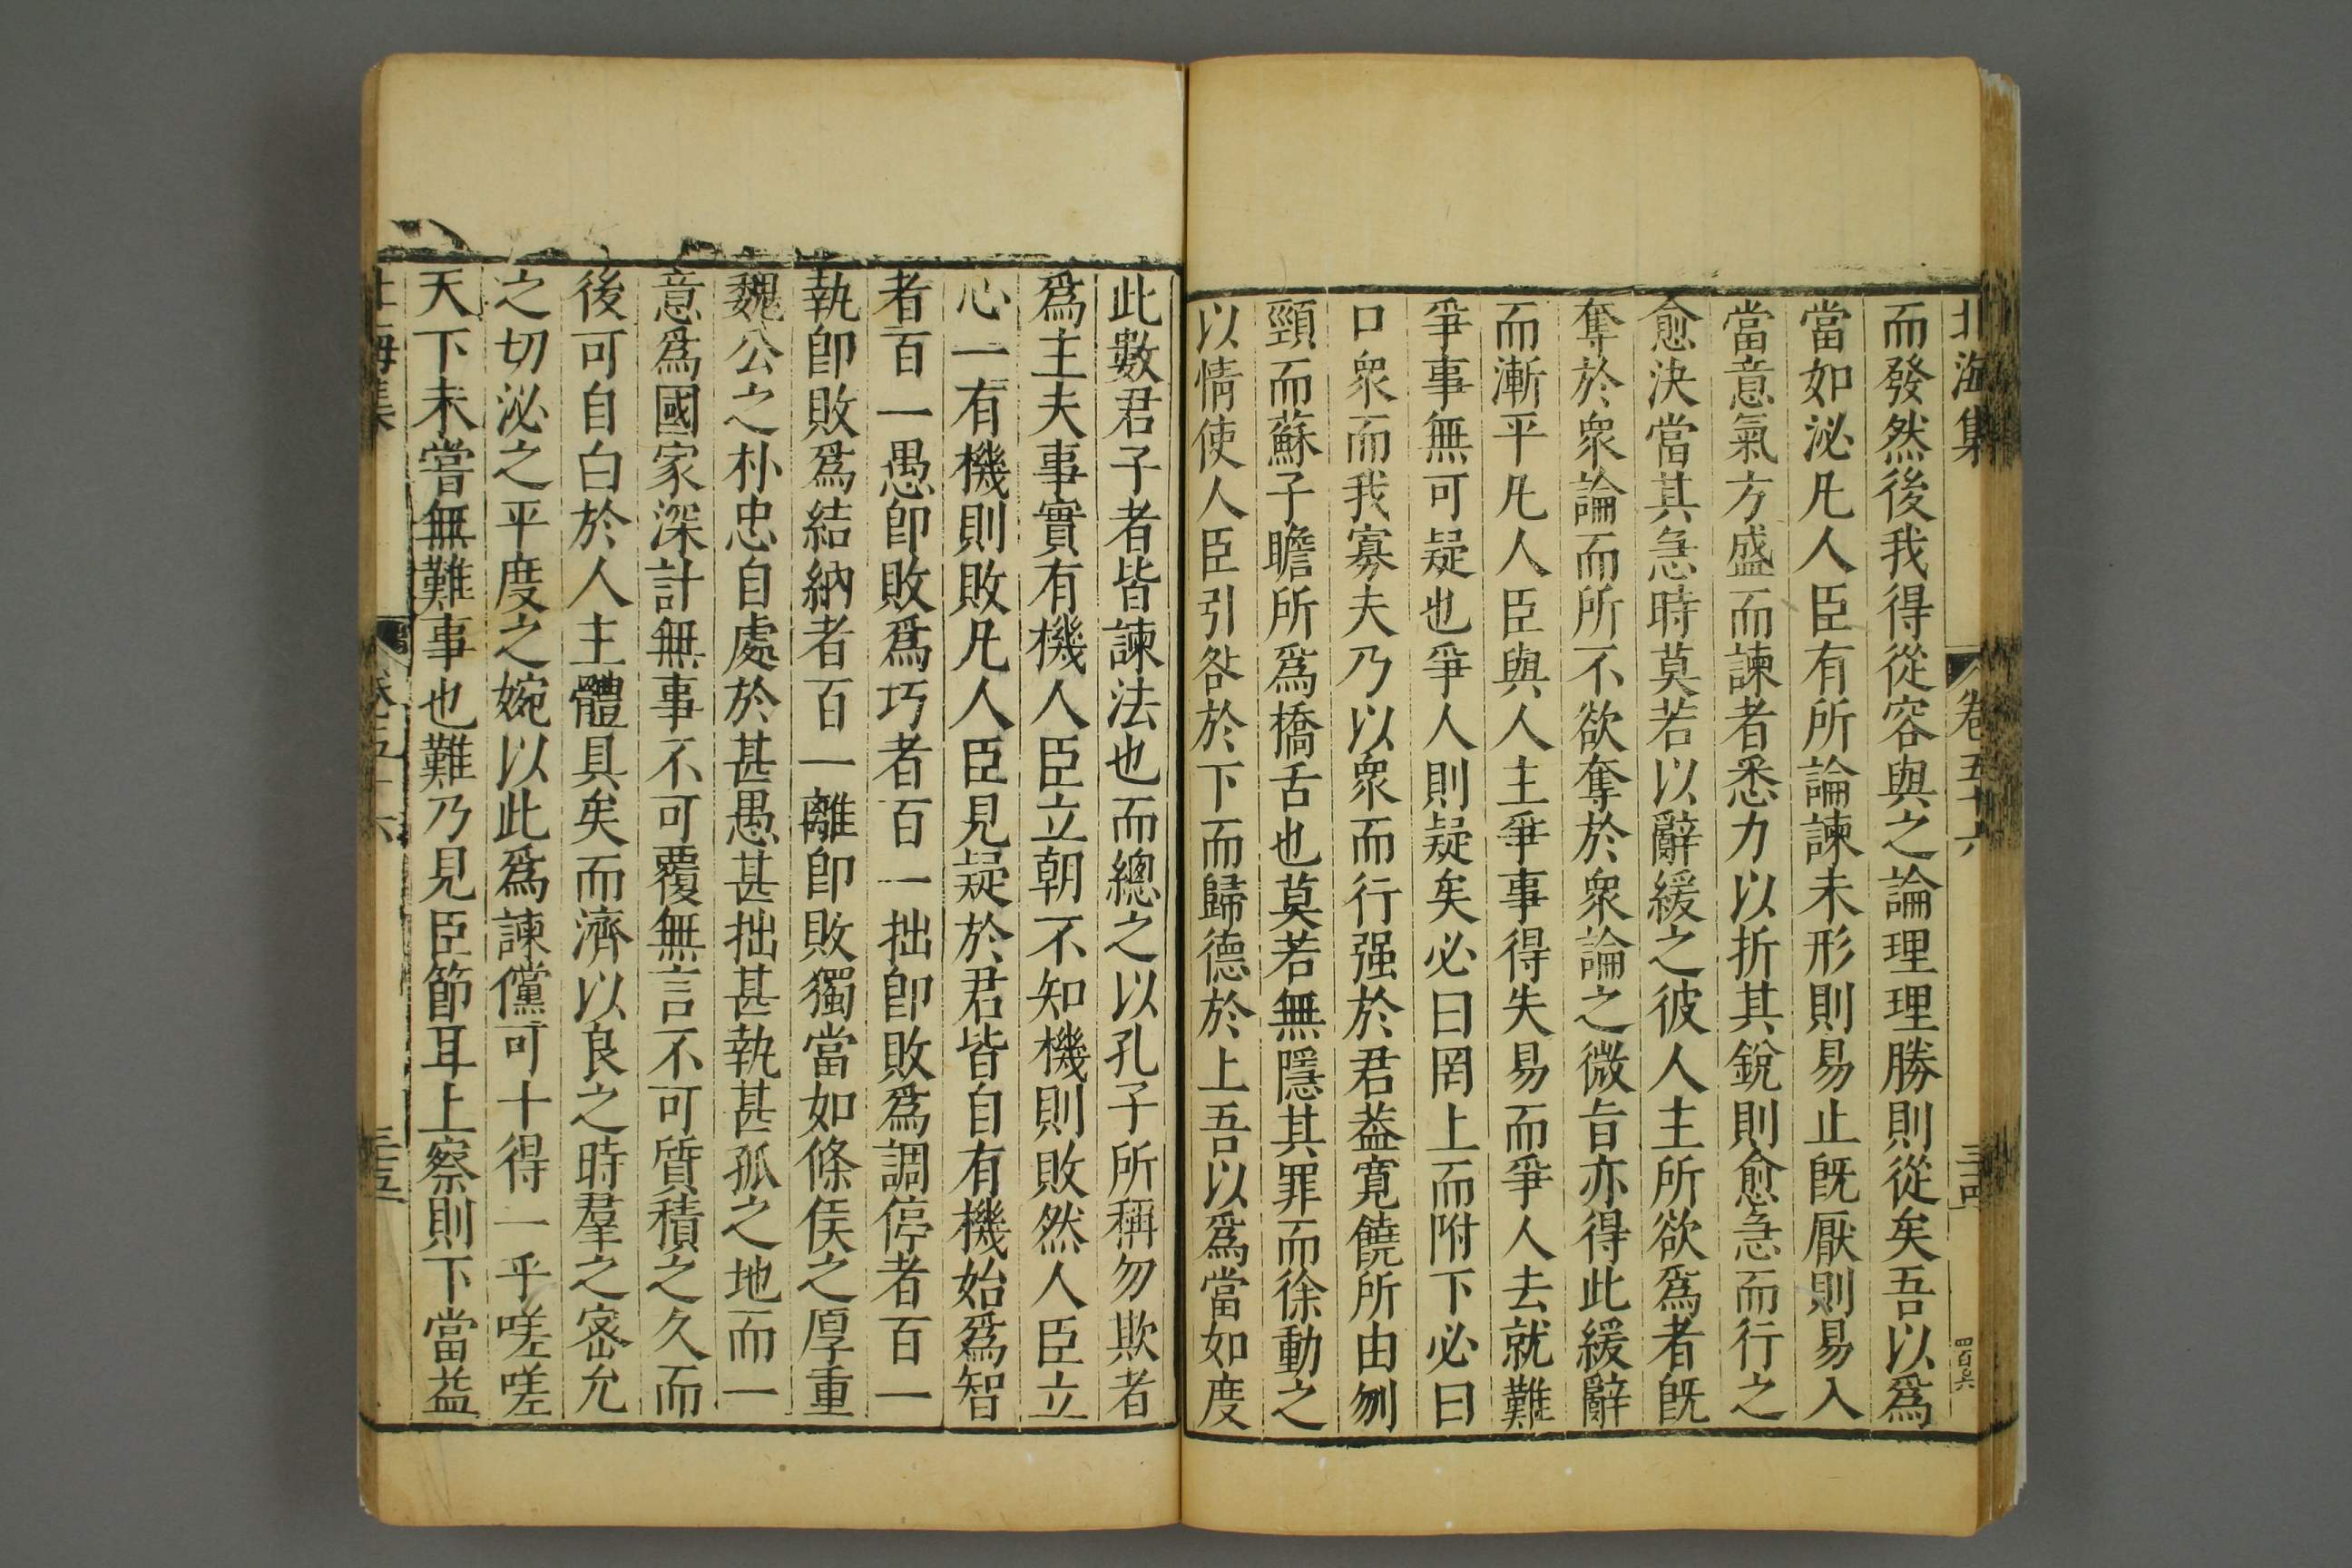 北海集 卷五十六 三四 四百六
而發然後我得從容與之論理理勝則從矣吾以爲
當如泌凡人臣有所論諫未形則易止旣厭則易入
當意氣方盛而諫者悉力以折其銳則愈急而行之
愈決當其急時莫若以辭緩之彼人主所欲爲者旣
奪於衆論而所不欲奪於衆論之微旨亦得此緩辭
而漸平凡人臣與人主爭事得失易而爭人去就難
爭事無可疑也爭人則疑矣必曰罔上而附下必曰
口衆而我寡夫乃以衆而行强於君葢寬饒所由刎
頸而蘇子瞻所爲撟舌也莫若無隱其罪而徐動之
以情使人臣引咎於下而歸德於上吾以爲當如度
此數君子者皆諫法也而總之以孔子所稱勿欺者
爲主夫事實有機人臣立朝不知機則敗然人臣立
心一有機則敗凡人臣見疑於君皆自有機始爲智
者百一愚卽敗爲巧者百一拙卽敗爲調停者百一
執卽敗爲結納者百一離卽敗獨當如條侯之厚重
魏公之朴忠自處於甚愚甚拙甚執甚孤之地而一
意爲國家深計無事不可覆無言不可質積之久而
後可自白於人主體具矣而濟以良之時羣之密允
之切泌之平度之婉以此爲諫儻可十得一乎嗟嗟
天下未嘗無難事也難乃見臣節耳上察則下當益
北海集 卷五十六 三五